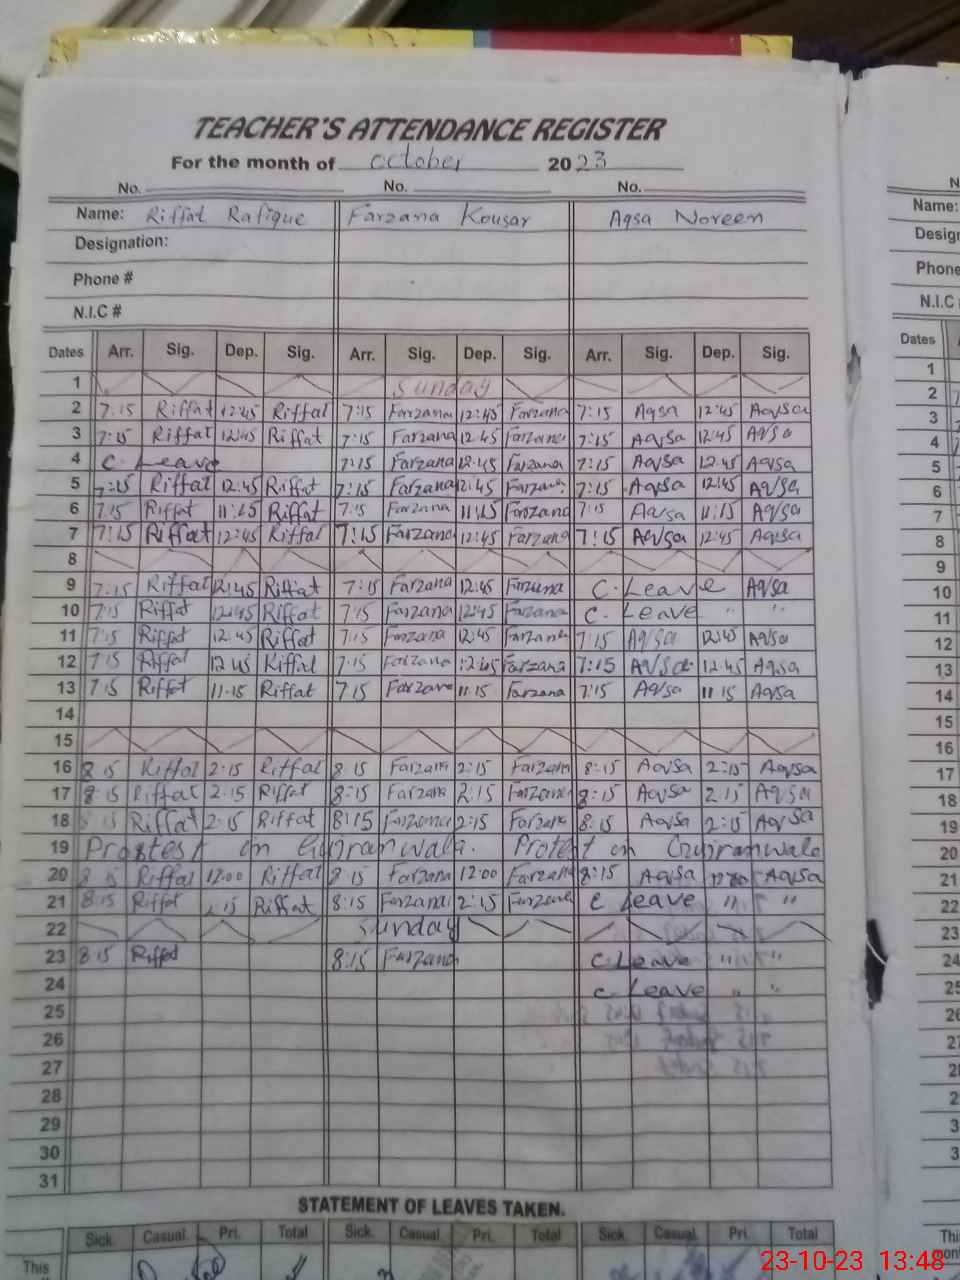 TEACHER'S ATTENDANCE REGISTER
For the month of October 2023
No. No. No.
Name: Riffat Rafique Farzana Kousar Aqsa Noreen
Designation:
Phone #
N.I.C #
Dates Arr. Sig. Dep. Sig. Arr. Sig. Dep. Sig. Arr. Sig. Dep. Sig.
1 Sunday
2 7:15 Riffat 12:45 Riffat 7:15 Farzana 12:45 Farzana 7:15 Aqsa 12:45 Aqsa
3 7:15 Riffat 12:45 Riffat 7:15 Farzana 12:45 Farzana 7:15 Aqsa 12:45 Aqsa
4 C. Leave 7:15 Farzana 12:45 Farzana 7:15 Aqsa 12:45 Aqsa
5 7:15 Riffat 12:45 Riffat 7:15 Farzana 12:45 Farzana 7:15 Aqsa 12:45 Aqsa
6 7:15 Riffat 11:15 Riffat 7:15 Farzana 11:15 Farzana 7:15 Aqsa 11:15 Aqsa
7 7:15 Riffat 12:45 Riffat 7:15 Farzana 12:45 Farzana 7:15 Aqsa 12:45 Aqsa
8
9 7:15 Riffat 12:45 Riffat 7:15 Farzana 12:45 Farzana C. Leave Aqsa
10 7:15 Riffat 12:45 Riffat 7:15 Farzana 12:45 Farzana C. Leave " "
11 7:15 Riffat 12:45 Riffat 7:15 Farzana 12:45 Farzana 7:15 Aqsa 12:45 Aqsa
12 7:15 Riffat 12:45 Riffat 7:15 Farzana 12:45 Farzana 7:15 Aqsa 12:45 Aqsa
13 7:15 Riffat 11:15 Riffat 7:15 Farzana 11:15 Farzana 7:15 Aqsa 11:15 Aqsa
14
15
16 8:15 Riffat 2:15 Riffat 8:15 Farzana 2:15 Farzana 8:15 Aqsa 2:15 Aqsa
17 8:15 Riffat 2:15 Riffat 8:15 Farzana 2:15 Farzana 8:15 Aqsa 2:15 Aqsa
18 8:15 Riffat 2:15 Riffat 8:15 Farzana 2:15 Farzana 8:15 Aqsa 2:15 Aqsa
19 Protest in Gujranwala. Protest in Gujranwala
20 8:15 Riffat 12:00 Riffat 8:15 Farzana 12:00 Farzana 8:15 Aqsa 12:00 Aqsa
21 8:15 Riffat 2:15 Riffat 8:15 Farzana 2:15 Farzana C Leave " "
22 Sunday
23 8:15 Riffat 8:15 Farzana C. Leave " "
24 C. Leave " "
25
26
27
28
29
30
31
STATEMENT OF LEAVES TAKEN.
Sick. Casual. Pri. Total Sick. Casual. Pri. Total Sick. Casual. Pri. Total
This
Name:
Phone
N.I.C
Dates
1
2
3
4
5
6
7
8
9
10
11
12
13
14
15
16
17
18
19
20
21
22
23
24
25
26
27
23-10-23 13:48